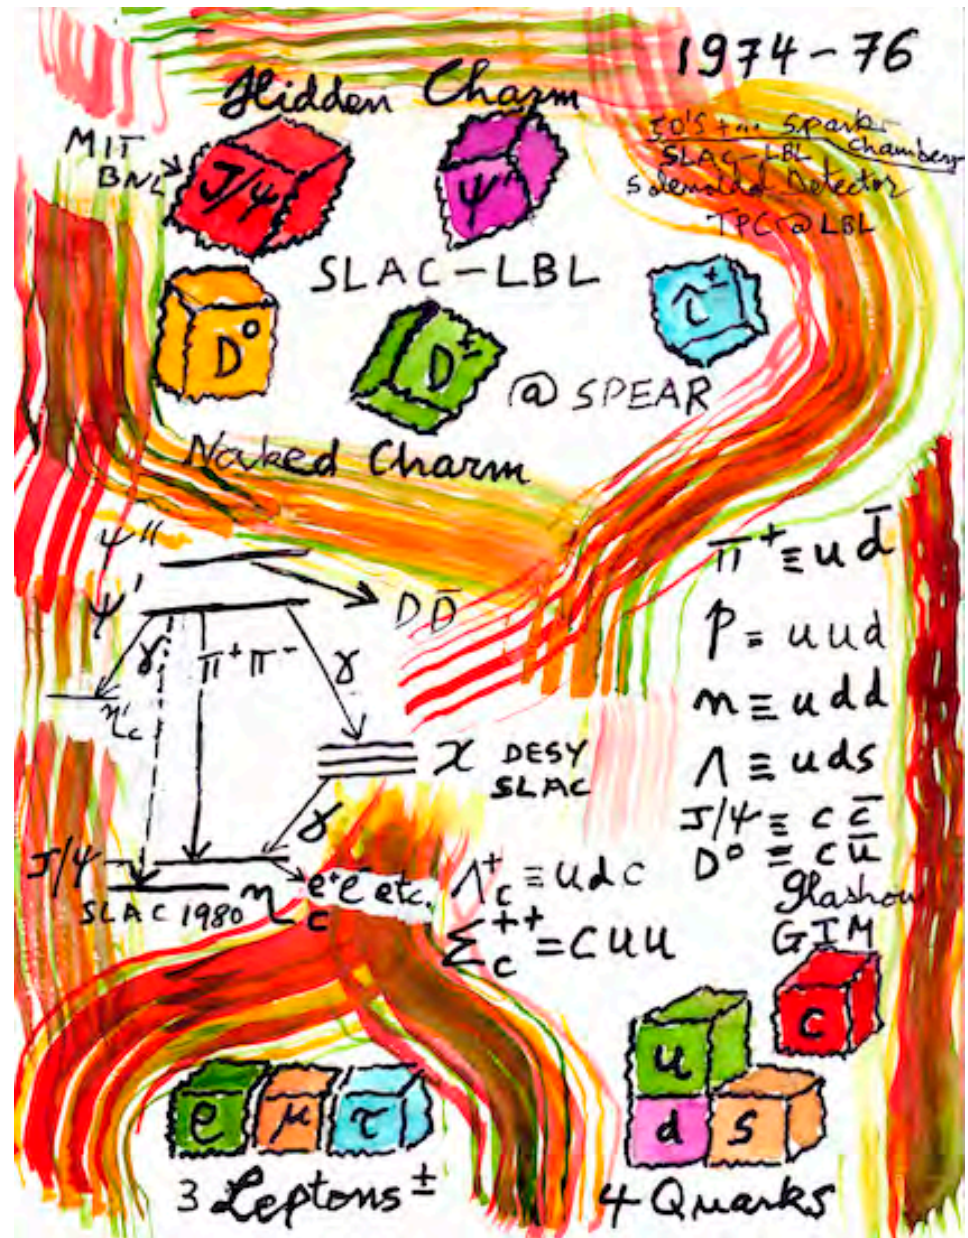 1974-76
Hidden Charm
50's + ... Spark
Chambers
SLAC-LBL
Solenoidal Detector
TPC @ LBL
MIT
BNL
J/ψ
ψ'
SLAC-LBL
D⁰
D±
τ±
@ SPEAR
Naked Charm
ψ''
ψ'
DD̄
γ
π⁺π⁻
γ
η'c
χ DESY
SLAC
γ
J/ψ
e⁺e⁻ etc.
SLAC 1980 ηc
π⁺ ≡ ud̄
p ≡ uud
n ≡ udd
Λ ≡ uds
J/ψ ≡ cc̄
D⁰ ≡ cū
Λc⁺ ≡ udc
Σc⁺⁺ = cuu
Glashow
GIM
c
u
d s
e μ τ
3 Leptons ±
4 Quarks